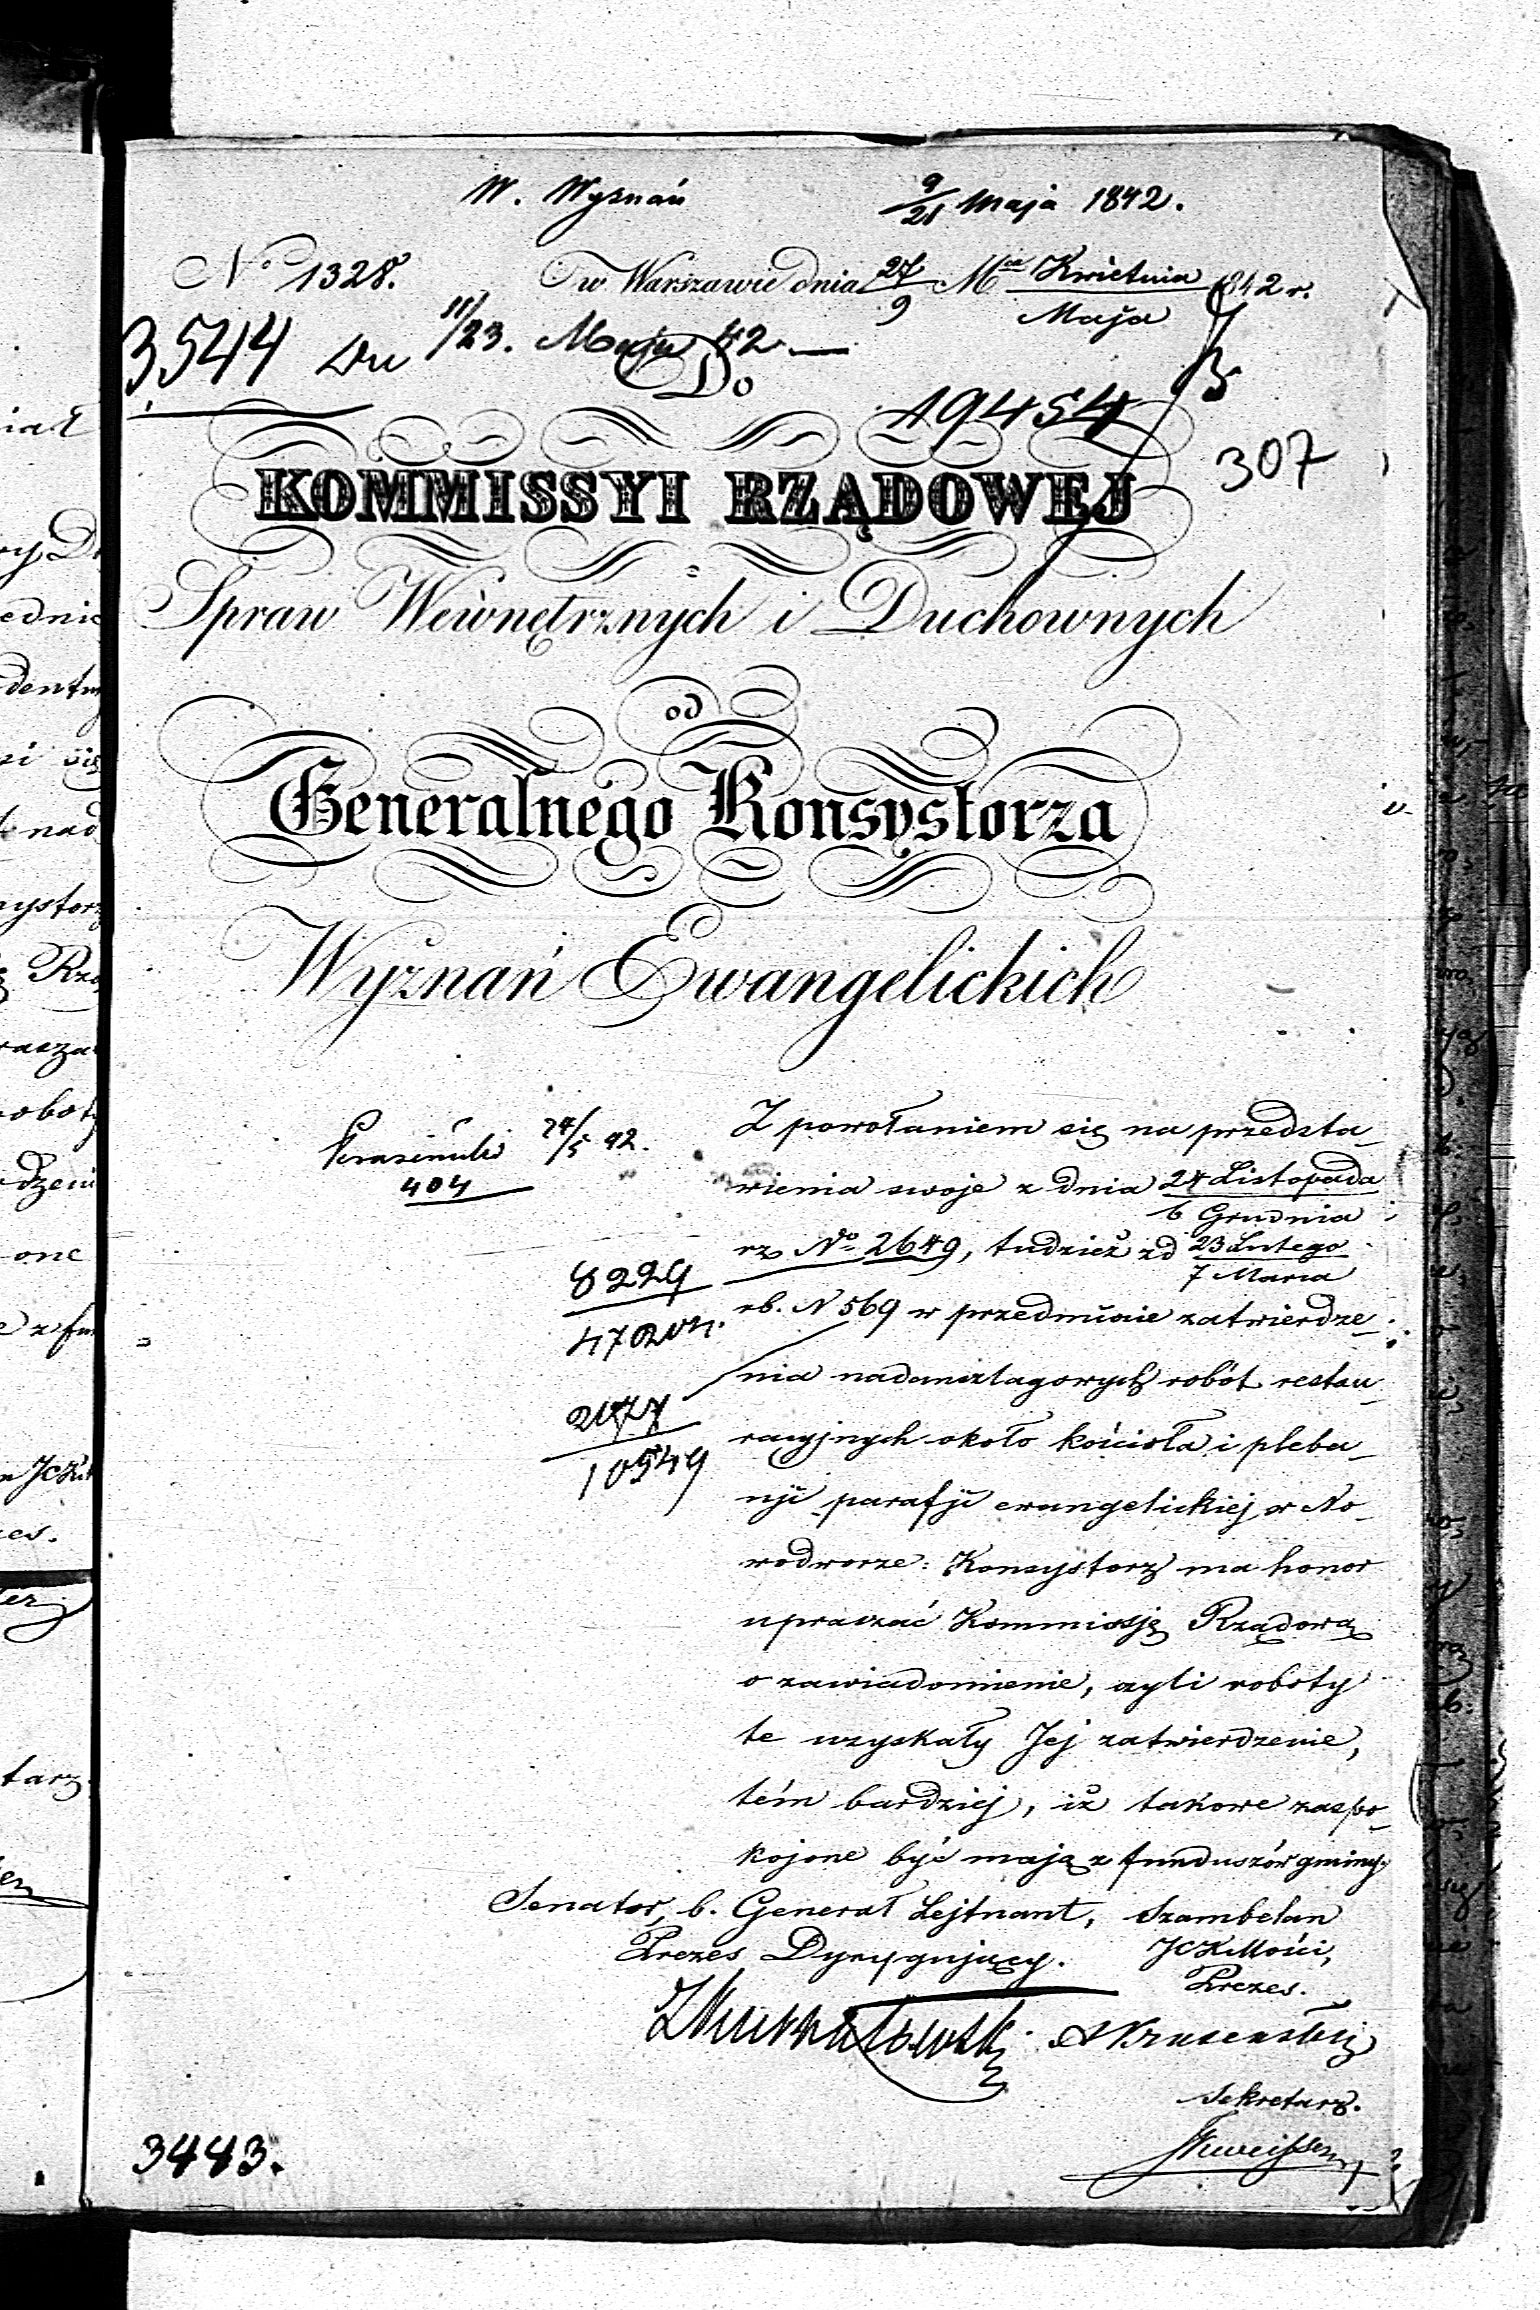 W. Wyznań 9/21 Maja 1842.
No 1328. w Warszawie dnia 27/9 Mca Kwietnia/Maja 1842 r.
3544 Dn 11/23. Maja 42
Do
19454
307
KOMMISSYI RZĄDOWEJ
Spraw Wewnętrznych i Duchownych
od
Generalnego Konsystorza
Wyznań Ewangelickich
24/5 42.
404
8229
2177
10549
Z powołaniem się na przedsta_
wienia swoje z dnia 24 Listopada/6 Grudnia
rz No 2649, tudzież z d 23 Lutego/7 Marca
rb. N 569 w przedmiocie zatwierdze_
nia nadanszlagowych robót restau_
racyjnych około kościoła i pleba_
nji parafji ewangelickiej w No_
wodworze: Konsystorz ma honor
upraszać Kommissję Rządową
o zawiadomienie, czyli roboty
te uzyskały Jej zatwierdzenie,
tém bardziej, iż takowe zaspo_
kojone być mają z funduszów gminy.
Senator, b. Generał Lejtnant, Szambelan
Prezes Dyrygujący. JCKMości,
Prezes.
Sekretarz.
3443.
iał
ednic
nad
ystorz
obot
one
tarz